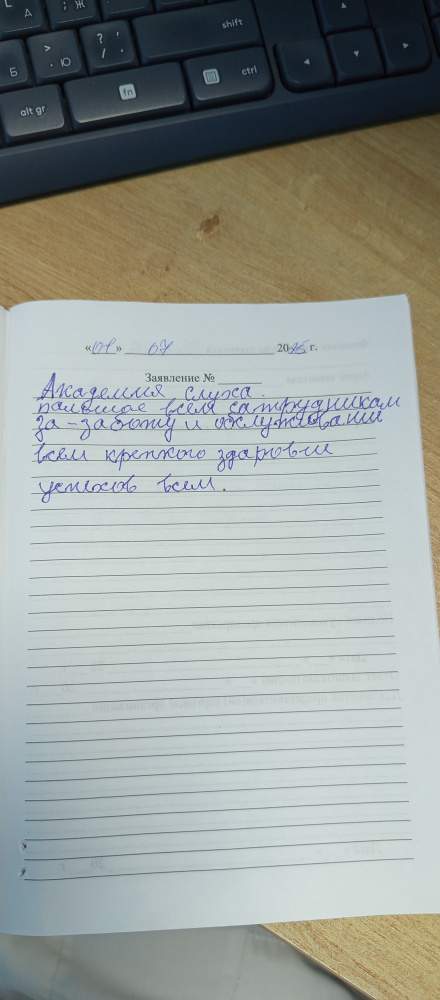 Д
; Ж
Б
> . Ю
? , / .
shift
alt gr
fn
ctrl
«01» 07 2025 г.
Заявление №
Академия слуха.
балшое всем сатрудникам
за-заботу и обслуживании
всем крепкого здаровие
успехов всем.